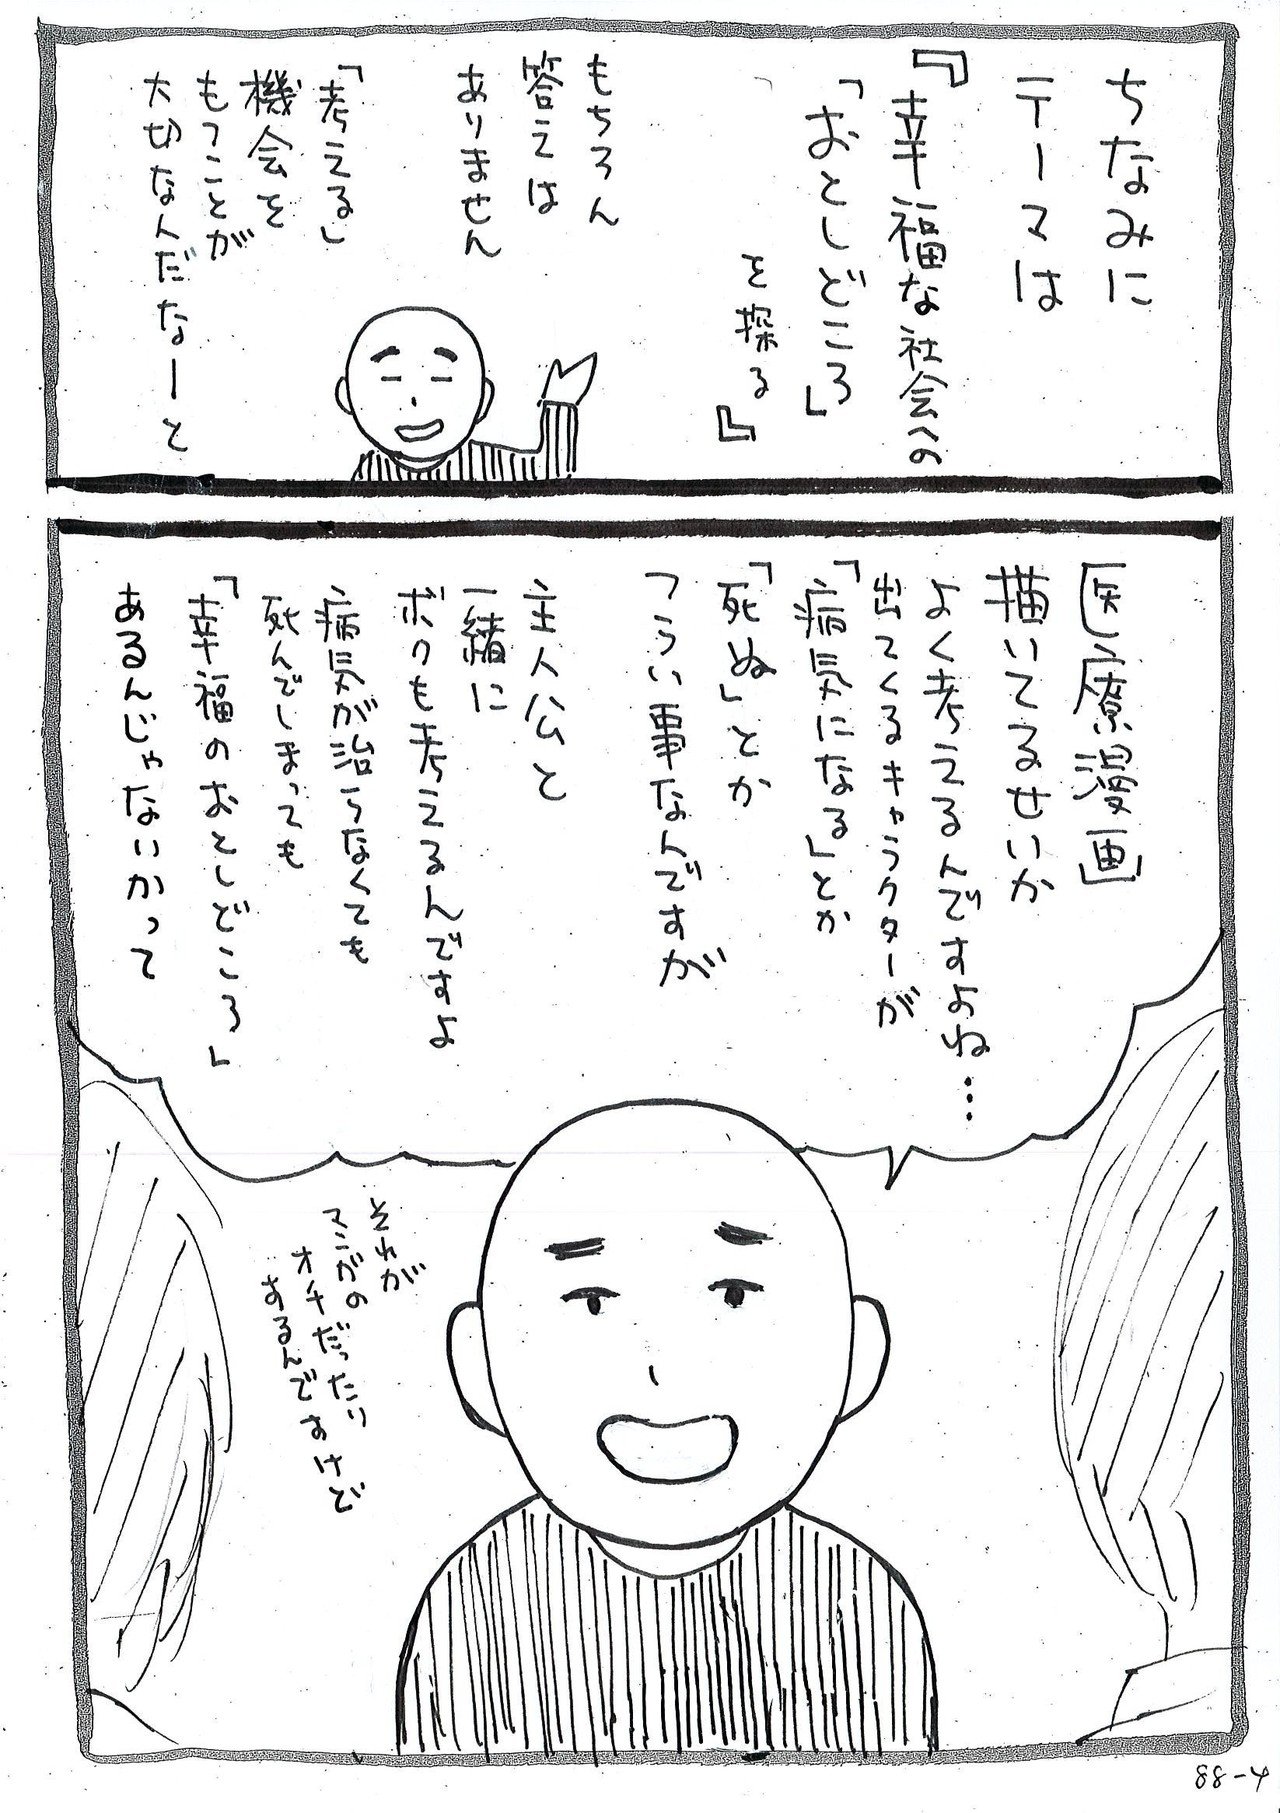 ちなみに
テーマは
『幸福な社会への
「おとしどころ」
を探る』
もちろん
答えは
ありません
「考える」
機会を
もつことが
大切なんだなーと
医療漫画
描いてるせいか
よく考えるんですよね…
出てくるキャラクターが
「病気になる」とか
「死ぬ」とか
つらい事なんですが
主人公と
一緒に
ボクも考えるんですよ
病気が治らなくても
死んでしまっても
「幸福のおとしどころ」
あるんじゃないかって
それが
マンガの
オチだったり
するんですけど
88-4